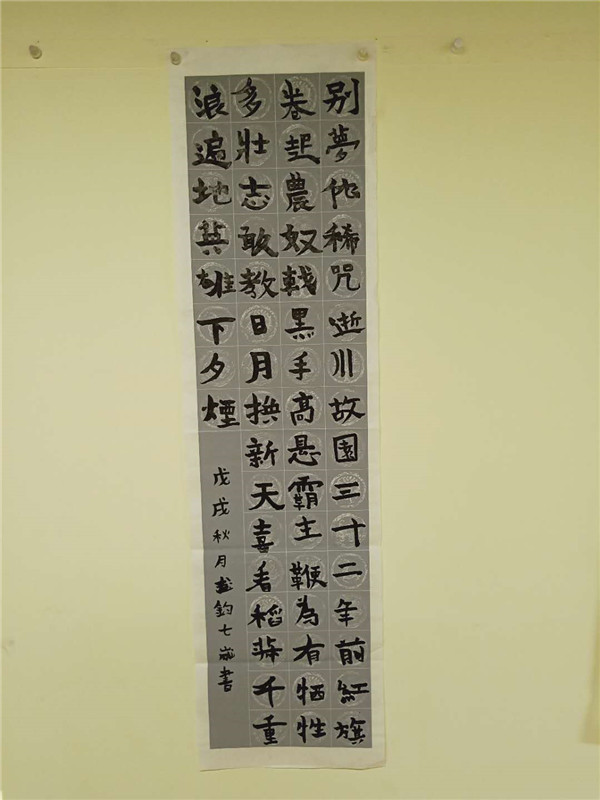 别夢依稀咒逝川故園三十二年前紅旗
卷起農奴戟黑手高悬霸主鞭為有牺牲
多壯志敢教日月换新天喜看稻菽千重
浪遍地英雄下夕煙
戊戌秋月鈞七歲書